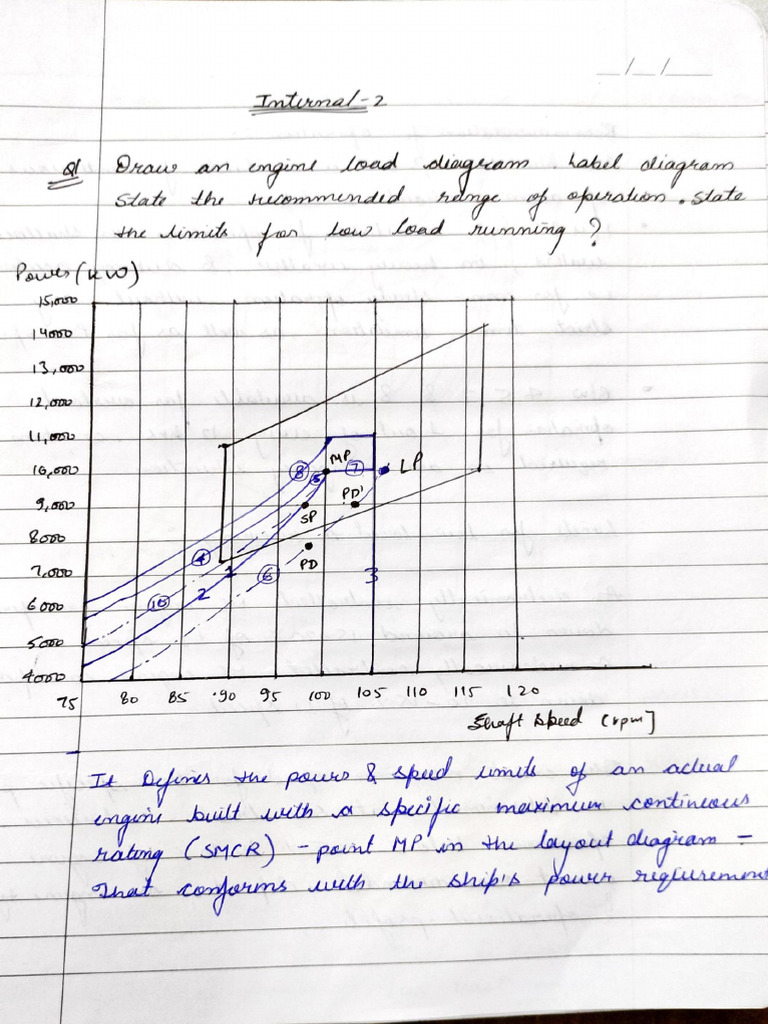 __/__/____
Internal-2
Q1 Draw an engine load diagram. Label diagram
state the recommended range of operation. state
the limits for low load running ?
Power (kW)
15,000
14000
13,000
12,000
11,000
10,000
9,000
8000
7,000
6000
5,000
4000
MP
8
5
7
LP
PD'
SP
4
1
PD
6
3
10
2
75
80
85
90
95
100
105
110
115
120
Shaft speed [rpm]
It Defines the power & speed limits of an actual
engine built with a specific maximum continuous
rating (SMCR) - point MP in the layout diagram -
That conforms with the ship's power reqiurement